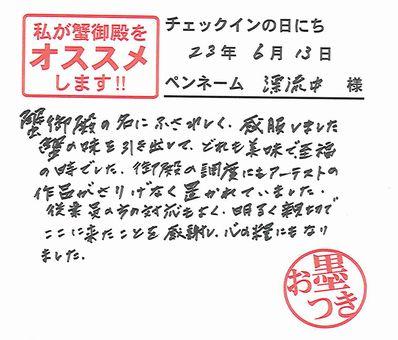 私が蟹御殿を
オススメ
します!!
チェックインの日にち
23年 6月 13日
ペンネーム 漂流中 様
蟹御殿の名にふさわしく、感服しました
蟹の味を引き出して、どれも美味で至福
の時でした。御殿の調度にもアーテストの
作品がさりげなく置かれていました。
従業員の方の対応もよく、明るく親切で
ここに来たことを感謝し、心の糧にもなり
ました。
お墨つき